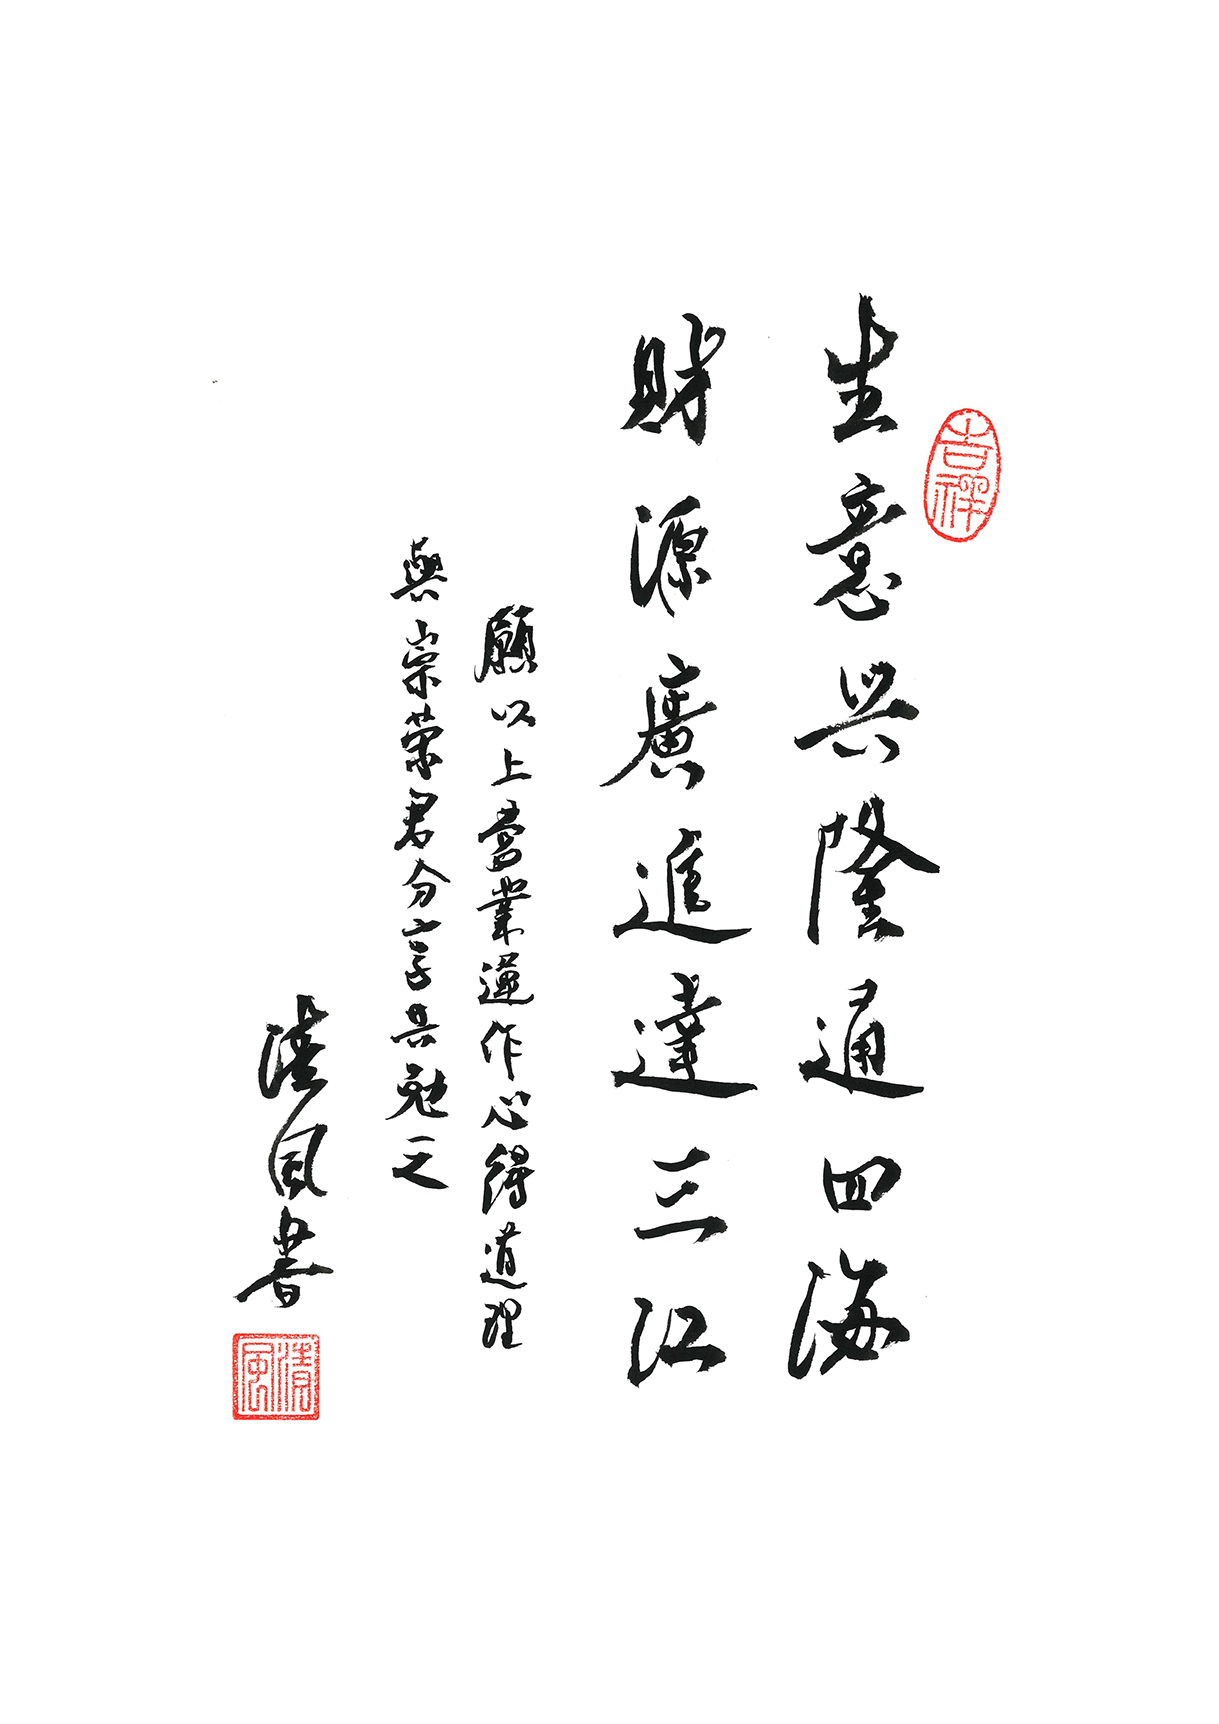 吉祥
生意兴隆通四海
財源廣進達三江
願以上營業運作心得道理
與崇榮君分享共勉之
清風書
清風